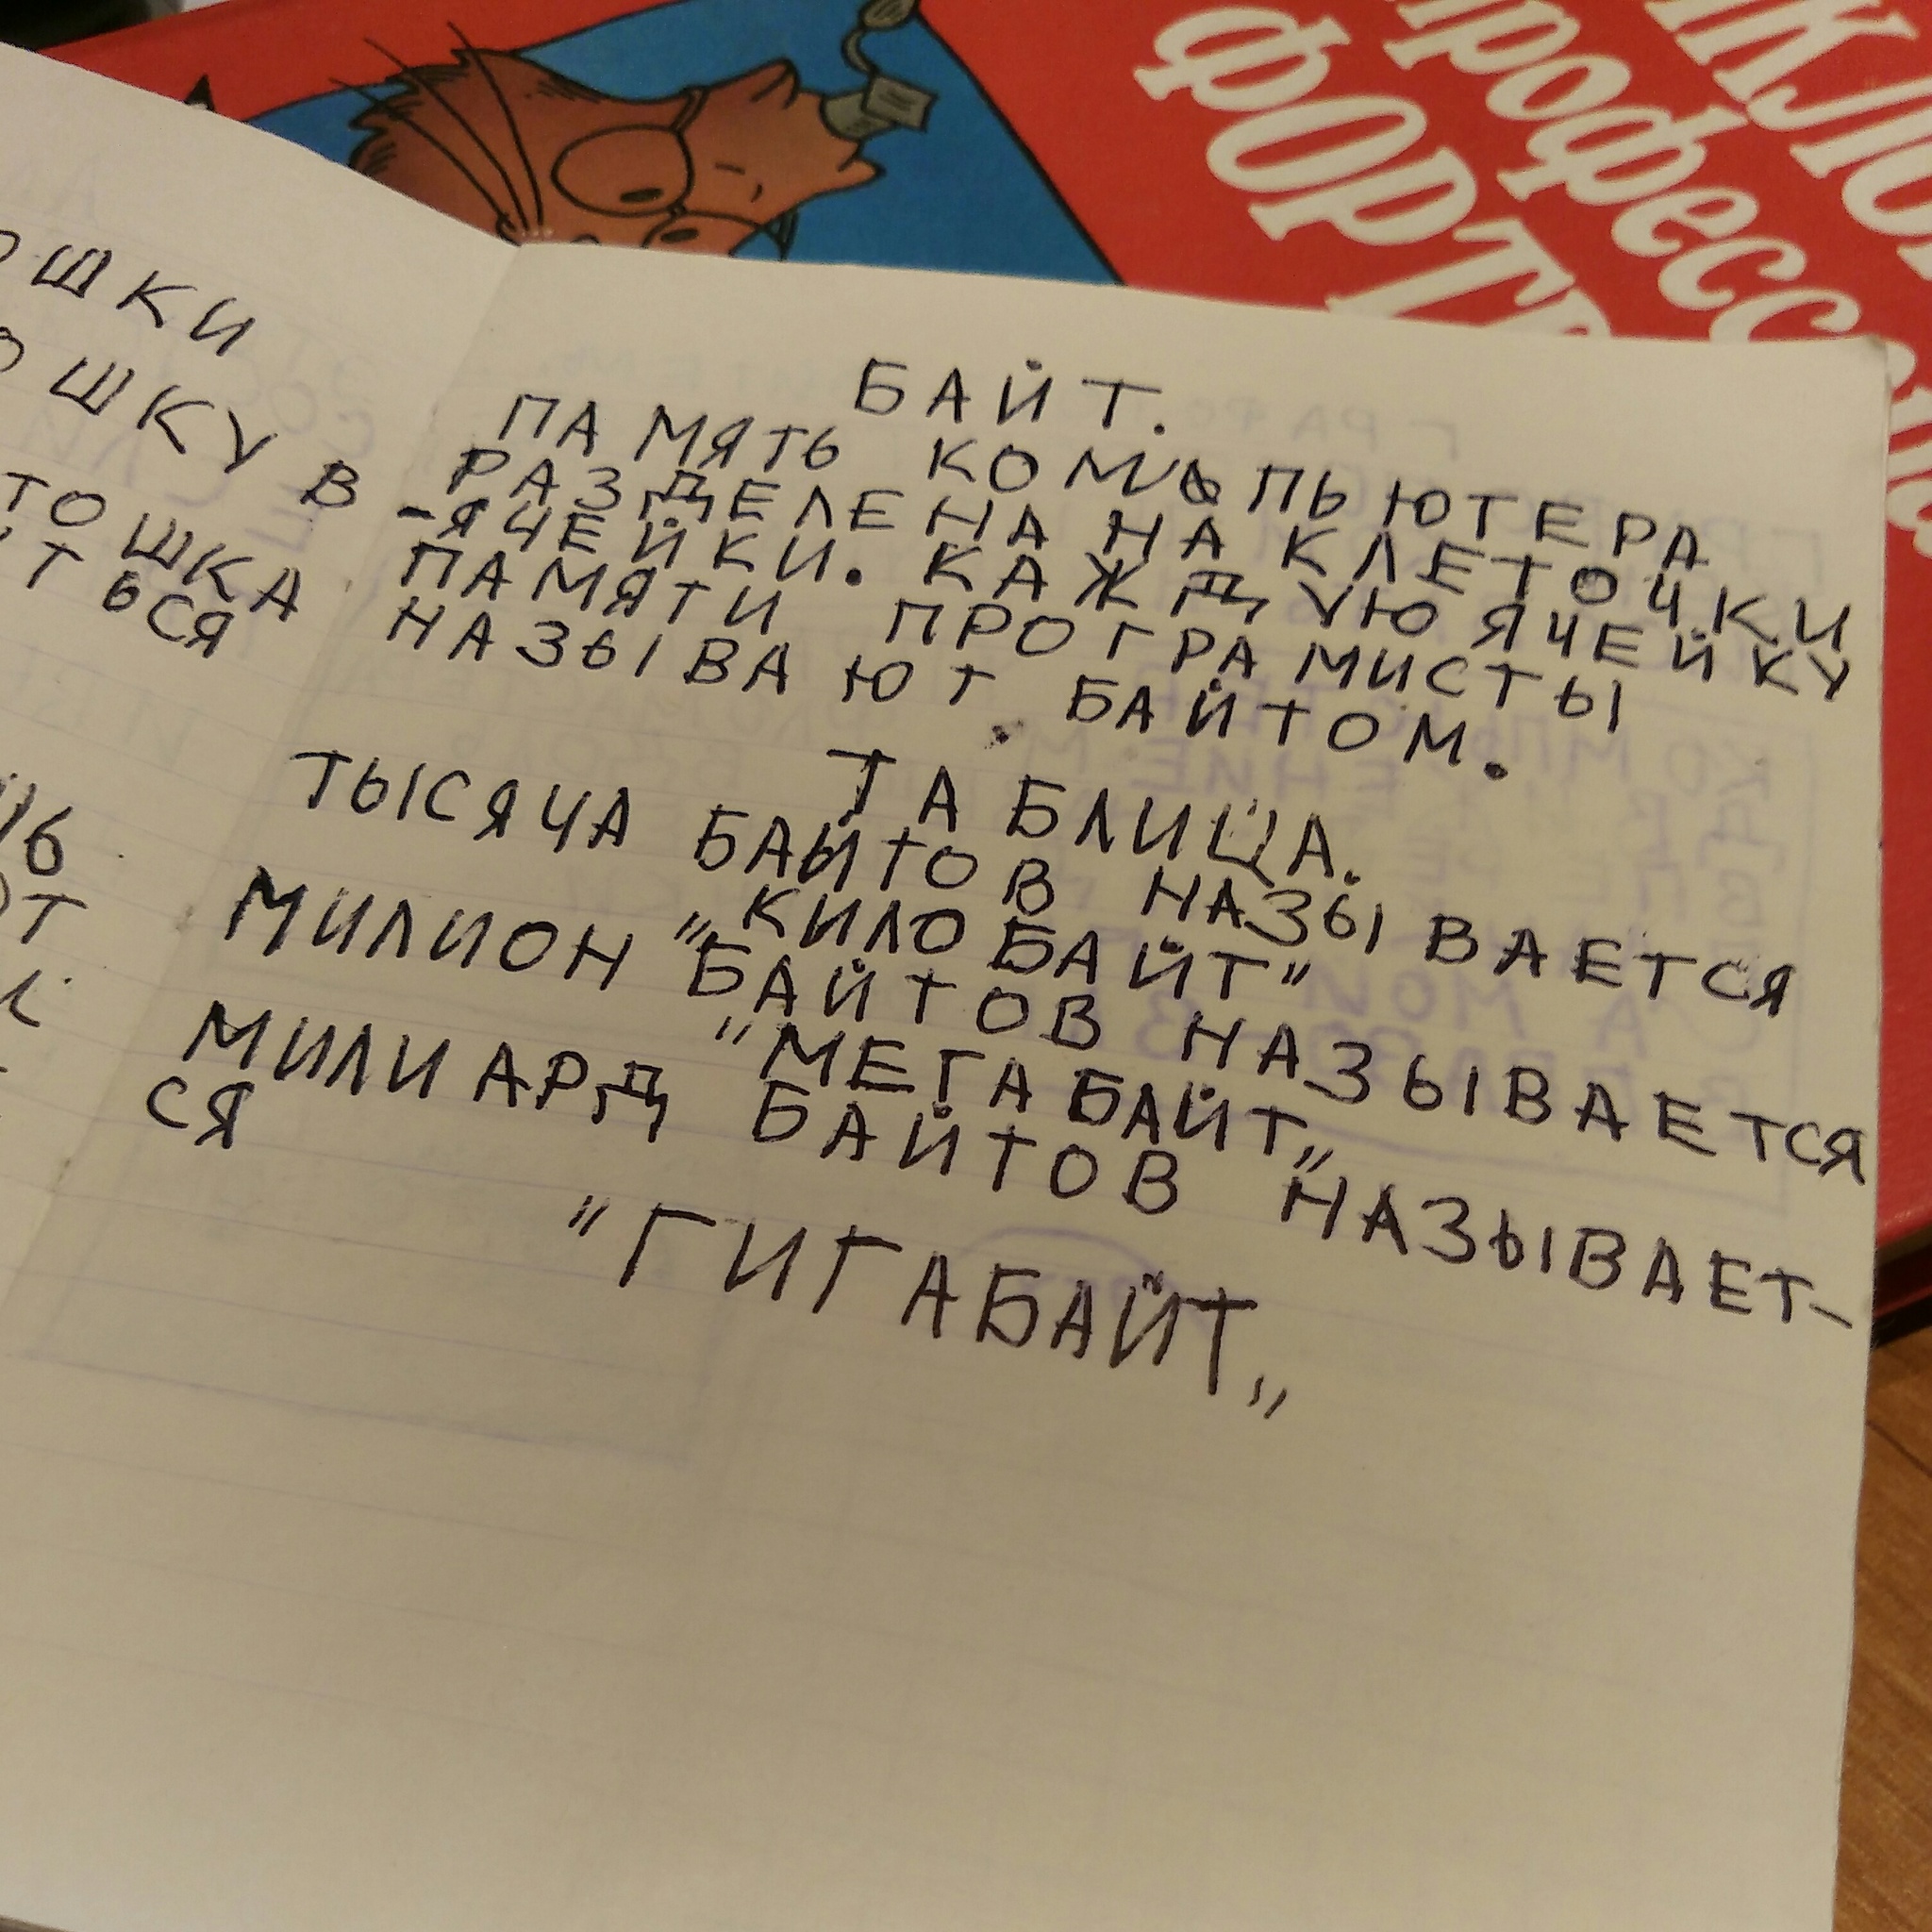 ФОРТР
БАЙТ.
ПАМЯТЬ КОМПЬЮТЕРА
РАЗДЕЛЕНА НА КЛЕТОЧКИ
-ЯЧЕЙКИ. КАЖДУЮ ЯЧЕЙКУ
ПАМЯТИ ПРОГРАМИСТЫ
НАЗЫВАЮТ БАЙТОМ.
ТАБЛИЦА.
ТЫСЯЧА БАЙТОВ НАЗЫВАЕТСЯ
"КИЛОБАЙТ"
МИЛИОН БАЙТОВ НАЗЫВАЕТСЯ
"МЕГАБАЙТ„
МИЛИАРД БАЙТОВ НАЗЫВАЕТ-
СЯ
"ГИГАБАЙТ„
ОШКИ
ОШКУ В
ТОШКА
ТЬСЯ